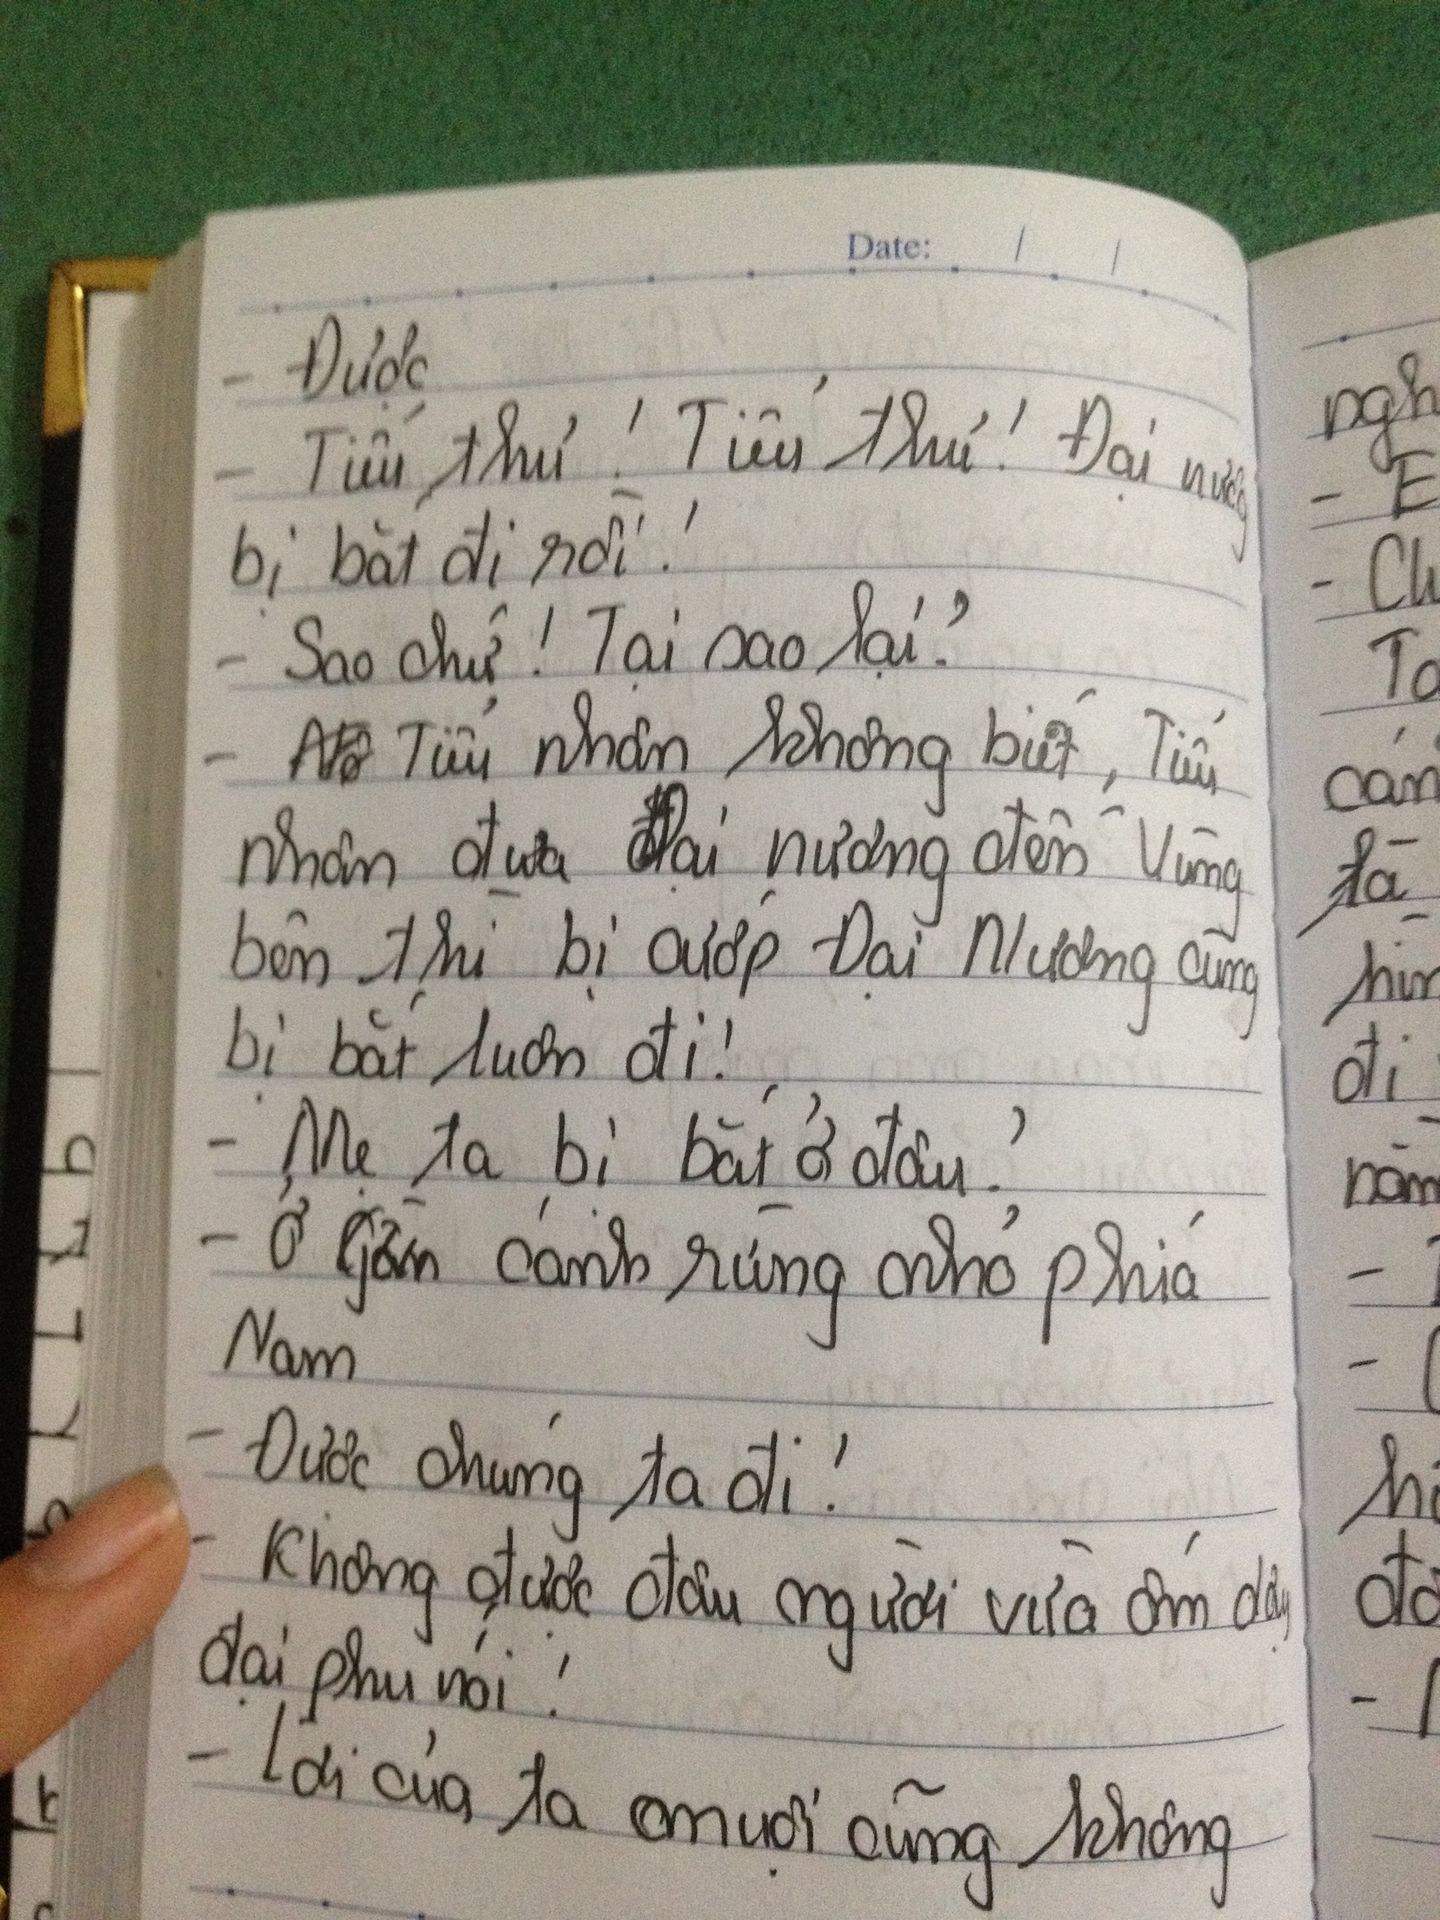 Date: / /
- Được
- Tiểu thư! Tiểu thư! Đại nương
bị bắt đi rồi!
- Sao chứ! Tại sao lại?
- Tiểu nhân không biết, Tiểu
nhân đưa Đại nương đến Vùng
bên thì bị cướp Đại Nương cũng
bị bắt luôn đi!
- Mẹ ta bị bắt ở đâu?
- Ở gần cánh rừng nhỏ phía
Nam
- Được chúng ta đi!
- Không được đâu người vừa ốm dậy
đại phu nói!
- Lời của ta muội cũng không
ngh
- E
- Ch
Ta
cán
tà
hìn
đi
nằm